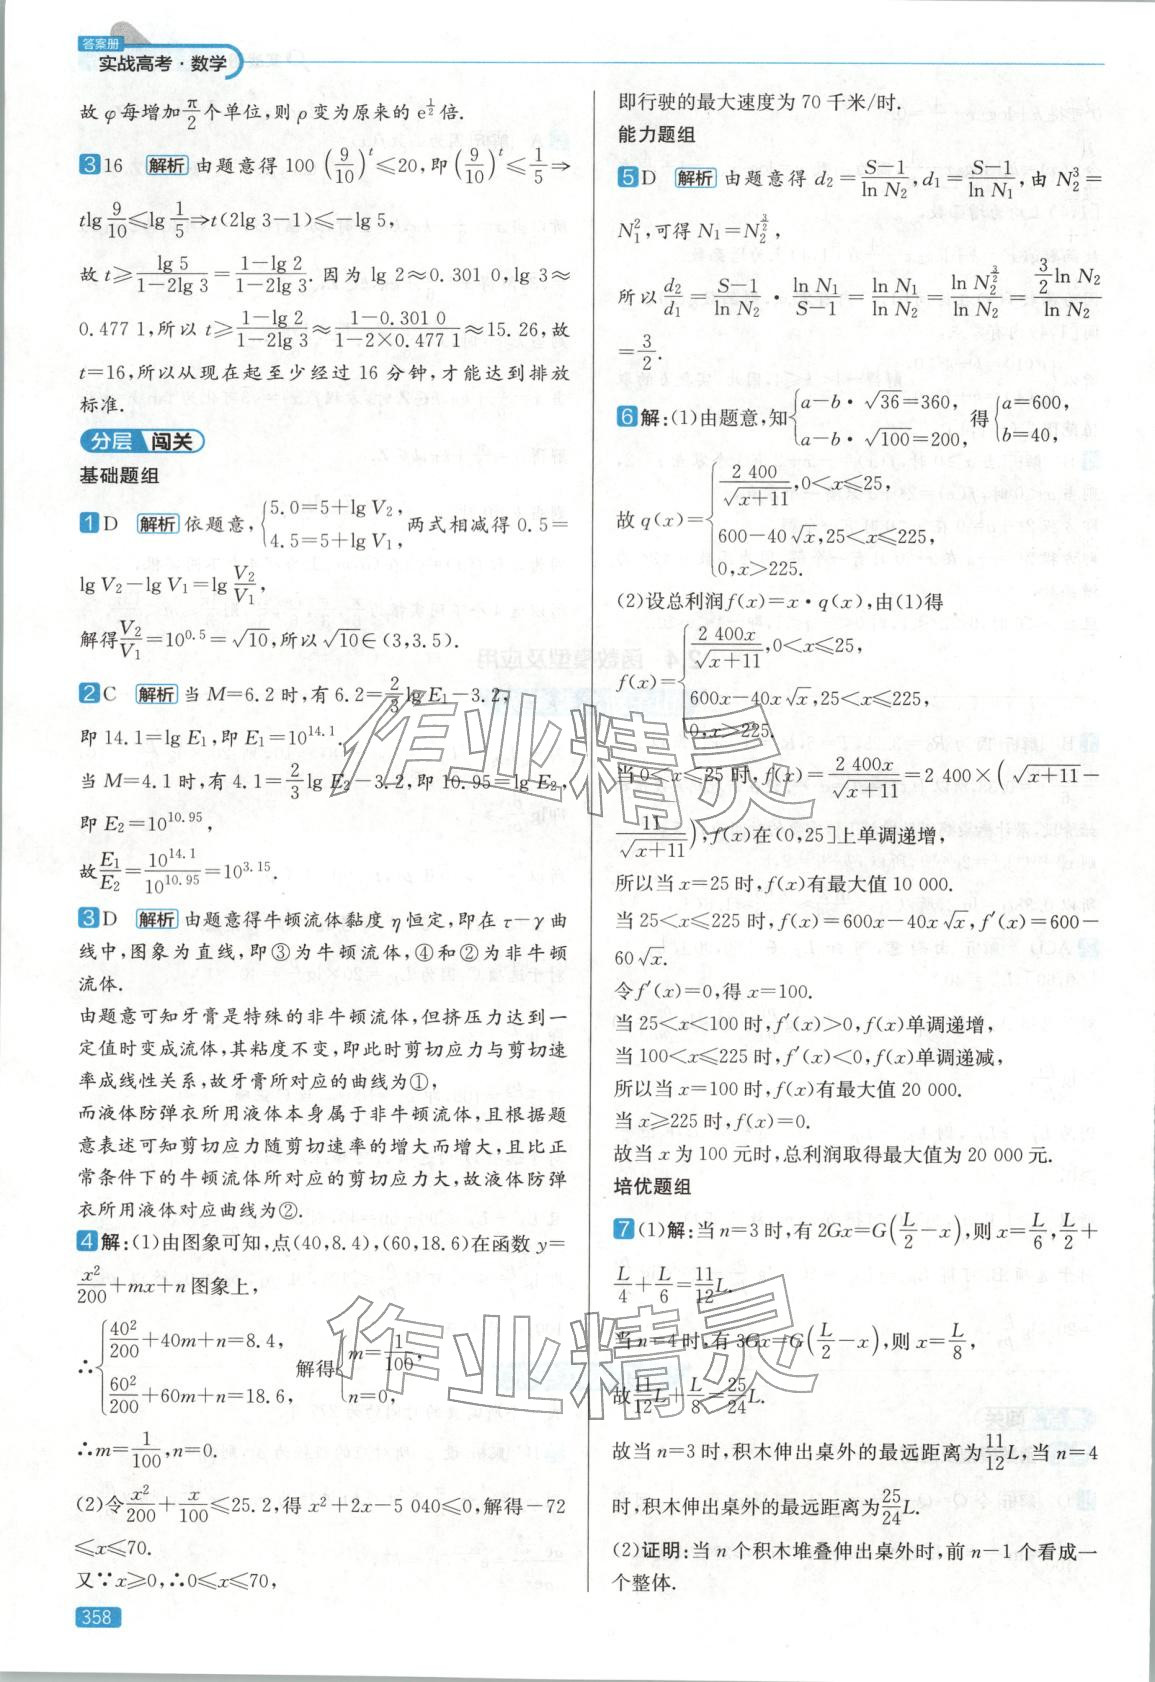 答案册
实战高考·数学
故 φ 每增加 π/2 个单位,则 ρ 变为原来的 e^(1/2) 倍.
3 16 解析 由题意得 100 (9/10)^t ≤20,即 (9/10)^t ≤ 1/5 ⇒
tlg 9/10 ≤ lg 1/5 ⇒ t(2lg 3−1)≤−lg 5,
故 t≥ lg 5/(1−2lg 3) = (1−lg 2)/(1−2lg 3). 因为 lg 2≈0.301 0,lg 3≈
0.477 1,所以 t≥ (1−lg 2)/(1−2lg 3) ≈ (1−0.301 0)/(1−2×0.477 1) ≈15.26,故
t=16,所以从现在起至少经过 16 分钟,才能达到排放
标准.
分层 闯关
基础题组
1 D 解析 依题意,{5.0=5+lg V₂, 4.5=5+lg V₁, 两式相减得 0.5=
lg V₂−lg V₁=lg V₂/V₁,
解得 V₂/V₁=10^0.5=√10,所以 √10∈(3,3.5).
2 C 解析 当 M=6.2 时,有 6.2=2/3 lg E₁−3.2,
即 14.1=lg E₁,即 E₁=10^14.1.
当 M=4.1 时,有 4.1=2/3 lg E₂−3.2,即 10.95=lg E₂,
即 E₂=10^10.95,
故 E₁/E₂=10^14.1/10^10.95=10^3.15.
3 D 解析 由题意得牛顿流体黏度 η 恒定,即在 τ−γ 曲
线中,图象为直线,即③为牛顿流体,④和②为非牛顿
流体.
由题意可知牙膏是特殊的非牛顿流体,但挤压力达到一
定值时变成流体,其粘度不变,即此时剪切应力与剪切速
率成线性关系,故牙膏所对应的曲线为①,
而液体防弹衣所用液体本身属于非牛顿流体,且根据题
意表述可知剪切应力随剪切速率的增大而增大,且比正
常条件下的牛顿流体所对应的剪切应力大,故液体防弹
衣所用液体对应曲线为②.
4 解:(1)由图象可知,点(40,8.4),(60,18.6)在函数 y=
x²/200+mx+n 图象上,
∴{40²/200+40m+n=8.4, 60²/200+60m+n=18.6, 解得{m=1/100, n=0,
∴m=1/100,n=0.
(2)令 x²/200+x/100≤25.2,得 x²+2x−5 040≤0,解得−72
≤x≤70.
又∵x≥0,∴0≤x≤70,
358
即行驶的最大速度为 70 千米/时.
能力题组
5 D 解析 由题意得 d₂=(S−1)/ln N₂,d₁=(S−1)/ln N₁,由 N₂³=
N₁²,可得 N₁=N₂^(3/2),
所以 d₂/d₁=(S−1)/ln N₂·ln N₁/(S−1)=ln N₁/ln N₂=ln N₂^(3/2)/ln N₂=(3/2 ln N₂)/ln N₂
=3/2.
6 解:(1)由题意,知{a−b·√36=360, a−b·√100=200, 得{a=600, b=40,
故 q(x)={2 400/√(x+11),0<x≤25, 600−40√x,25<x≤225, 0,x>225.
(2)设总利润 f(x)=x·q(x),由(1)得
f(x)={2 400x/√(x+11),0<x≤25, 600x−40x√x,25<x≤225, 0,x>225.
当 0<x≤25 时,f(x)=2 400x/√(x+11)=2 400×(√(x+11)−
11/√(x+11)),f(x)在(0,25]上单调递增,
所以当 x=25 时,f(x)有最大值 10 000.
当 25<x≤225 时,f(x)=600x−40x√x,f′(x)=600−
60√x.
令 f′(x)=0,得 x=100.
当 25<x<100 时,f′(x)>0,f(x)单调递增,
当 100<x≤225 时,f′(x)<0,f(x)单调递减,
所以当 x=100 时,f(x)有最大值 20 000.
当 x≥225 时,f(x)=0.
故当 x 为 100 元时,总利润取得最大值为 20 000 元.
培优题组
7 (1)解:当 n=3 时,有 2Gx=G(L/2−x),则 x=L/6,L/2+
L/4+L/6=11/12 L.
当 n=4 时,有 3Gx=G(L/2−x),则 x=L/8,
故 11/12 L+L/8=25/24 L.
故当 n=3 时,积木伸出桌外的最远距离为 11/12 L,当 n=4
时,积木伸出桌外的最远距离为 25/24 L.
(2)证明:当 n 个积木堆叠伸出桌外时,前 n−1 个看成一
个整体.
作业精灵
作业精灵